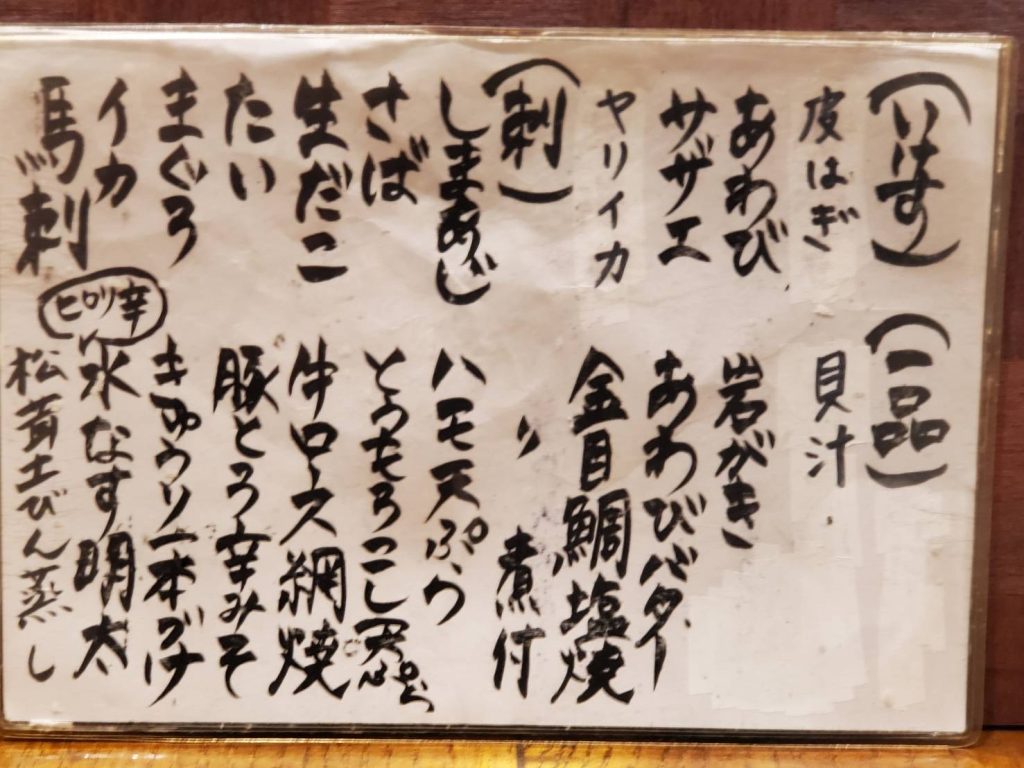 (いけす)
皮はぎ
あわび
サザエ
ヤリイカ
(刺)
しまあじ
さば
生だこ
たい
まぐろ
イカ
馬刺
(一品)
貝汁
岩がき
あわびバター
金目鯛塩焼
〃 煮付
ハモ天ぷら
とうもろこし天ぷら
牛ロース網焼
豚とろ辛みそ
きゅうり一本づけ
ピリ辛
水なす明太
松茸土びん蒸し